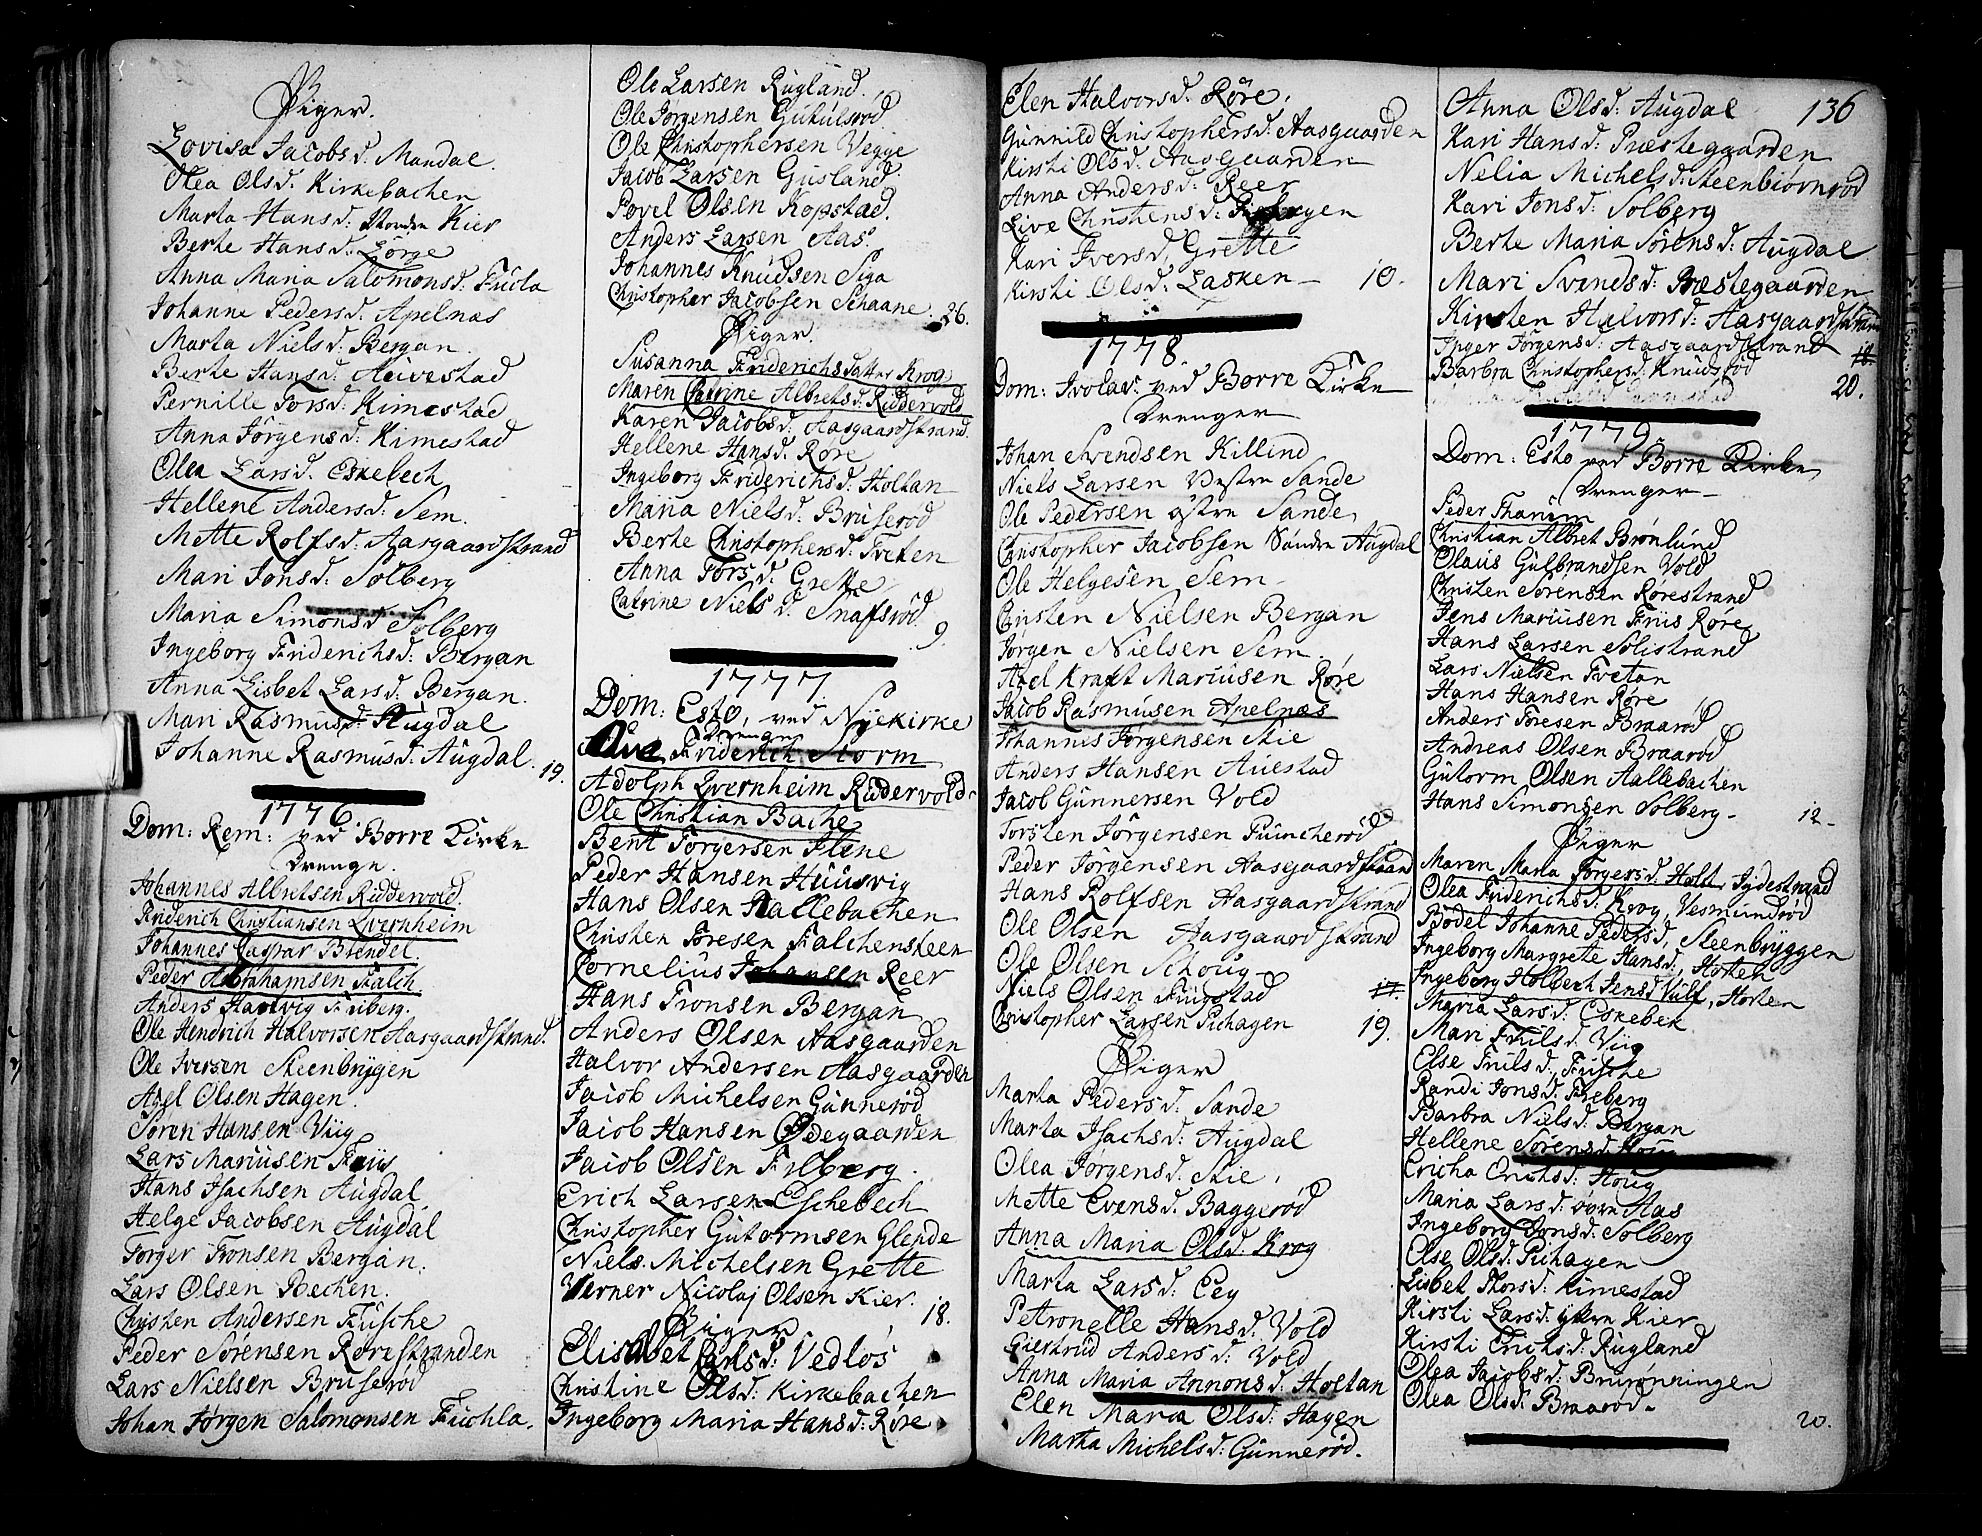 Piger.
Lovisa Jacobsd: Mandal.
Olea Olsd: Kirkebachen
Marta Hansd: Norden Kier
Berte Hansd: Lørge
Anna Maria Salomonsd: Fucla
Johanne Pedersd: Apelnæs
Marta Nielsd: Bergan.
Berte Hansd: Auvestad
Pernille Torsd: Kimestad
Anna Jørgensd: Kimestad
Olea Larsd. Eskebech
Hellene Andersd: Sem.
Mette Rolfsd: Aasgaardstrand
Mari Jonsd: Solberg
Maria Simonsd Solberg
Ingeborg Friderichsd: Bergan
Anna Lisbet Larsd: Bergan.
Mari Rasmusd: Augdal
Johanne Rasmusd: Augdal. 19.
1776.
Dom: Rem: ved Borre Kirke
Drenge.
Johannes Albretsen Riddervold.
Friderich Christiansen Qvernheim
Johannes Caspar Brendel.
Peder Abrahamsen Falch.
Anders Hartvig Friberg.
Ole Hendrich Halvorsen Aasgaardstrand.
Ole Iversen Steenbrygen
Axel Olsen Hagen.
Søren Hansen Viig
Lars Mariusen Friis
Hans Isachsen Augdal
Helge Jacobsen Augdal
Torger Tronsen Bergan.
Lars Olsen Bechen.
Christen Andersen Fusche
Peder Sørensen Rørestranden
Lars Nielsen Bruserød
Johan Jørgen Salomonsen Fuchla.
Ole Larsen Rugland.
Ole Jørgensen Gutulsrød
Ole Christophersen Vegge
Jacob Larsen Gusland
Povel Olsen Kopstad.
Anders Larsen Aas.
Johannes Knudsen Siga
Christopher Jacobsen Schaane. 26.
Piger.
Susanna Friderichs Datter Krog
Maren Catrine Albretsd: Riddervold
Karen Jacobsd: Aasgaardstrand.
Hellene Hansd: Røre
Ingeborg Friderichsd: Holtan
Maria Nielsd: Bruserød
Berte Christophersd: Tveten
Anna Torsd: Grette
Catrine Nielsd: Snafsrød. 9.
1777.
Dom: Esto, ved Nykirke
Drenger
Friderich Storm
Adolph Qvernheim Riddervold.
Ole Christian Bache
Bent Torgersen Flene
Peder Hansen Huusvig
Hans Olsen Hallebachen
Christen Toresen Falchensteen
Cornelius Johansen Reer
Hans Tronsen Bergan
Anders Olsen Aasgaarden
Halvor Andersen Aasgaarden
Jacob Michelsen Gunnerød
Jacob Hansen Ødegaarden
Jacob Olsen Filberg.
Erich Larsen Eschebech
Christopher Gutormsen Glende
Niels Michelsen Grette
Verner Nicolaj Olsen Kier. 18.
Piger
Elisabet Carlsd: Vedløs
Christine Olsd: Kirkebachen
Ingeborg Maria Hansd: Røre
Elen Halvorsd: Røre.
Gunnild Christophersd: Aasgaarden
Kirsti Olsd: Aasgaarden
Anna Andersd: Reer
Live Christensd:
Kari Iversd, Grette
Kirsti Olsd: Lasken 10.
1778.
Dom: Ivolav: ved Borre Kirke
Drenger
Johan Svendsen Killind
Niels Larsen Vestre Sande
Ole Pedersen østre Sande
Christopher Jacobsen Søndre Augdal
Ole Helgesen Sem
Christen Nielsen Bergan
Jørgen Nielsen Sem.
Axel Kraft Mariusen Røre
Jacob Rasmusen Apelnæs
Johannis Jørgensen Skie
Anders Hansen Auestad
Jacob Gunnersen Vold
Torsten Jørgensen Puncherød
Peder Jørgensen Aasgaardstrand
Hans Rolfsen Aasgaardstrand
Ole Olsen Aasgaardstrand
Ole Olsen Schoug
Niels Olsen Fugstad 17.
Christopher Larsen Pichagen 19.
Piger
Marta Pedersd: Sande
Marta Isachsd: Augdal
Olea Jørgensd: Skie,
Mette Evensd: Baggerød
Anna Maria Olsd: Krog
Marta Larsd: Eey
Petronelle Hansd: Vold
Giestrud Andersd: Vold
Anna Maria Annonsd: Holtan
Elen Maria Olsd: Hagen
Marta Michelsd: Gunnerød.
136
Anna Olsd: Augdal
Kari Hansd: Præstegaarden
Nelia Michelsd: Steenbiørnrød
Kari Jonsd: Solberg
Berte Maria Sørensd: Augdal
Mari Svendsd: Præstegaarden
Kirsten Halvorsd: Aasgaardstrand
Inger Jørgensd: Aasgaardstrand 18.
Barbra Christophersd: Knudsrød 20.
1779.
Dom: Esto ved Borre Kirke
Drenger
Peder Thanum
Christian Albret Brønlund
Olaus Gulbrandsen Vold
Christen Sørensen Rørestrand
Jens Mariusen Friis Røre
Hans Larsen Solistrand
Lars Nielsen Tvetan
Hans Hansen Røre
Anders Toresen Braarød
Andreas Olsen Braarød
Gutorm Olsen Hallebachen
Hans Simonsen Solberg 12
Piger
Maren Marta Torgersd: Holt, Sydestrand
Olea Friderichsd: Krog, Vesmundrød
Bodel Johanne Pedersd, Steenbryggen
Ingeborg Margrete Hansd, Horten
Ingeborg Holbech Jensd: Vulf, Horten
Maria Larsd: Eskebek
Mari Trulsd: Viig
Else Trulsd: Fusche
Randi Jonsd: Freberg
Barbra Nielsd: Bergan
Hellene Sørensd: Houg
Ericha Erichsd: Houg
Maria Larsd: øvre Aas
Ingeborg Jonsd: Solberg
Else Olsd: Pichagen
Lisbet Thorsd: Kimestad
Kirsti Larsd: ytre Kier
Kirsti Erichsd: Rugland
Olea Jacobsd: Brurønningen
Olea Olsd: Braarød. 20.